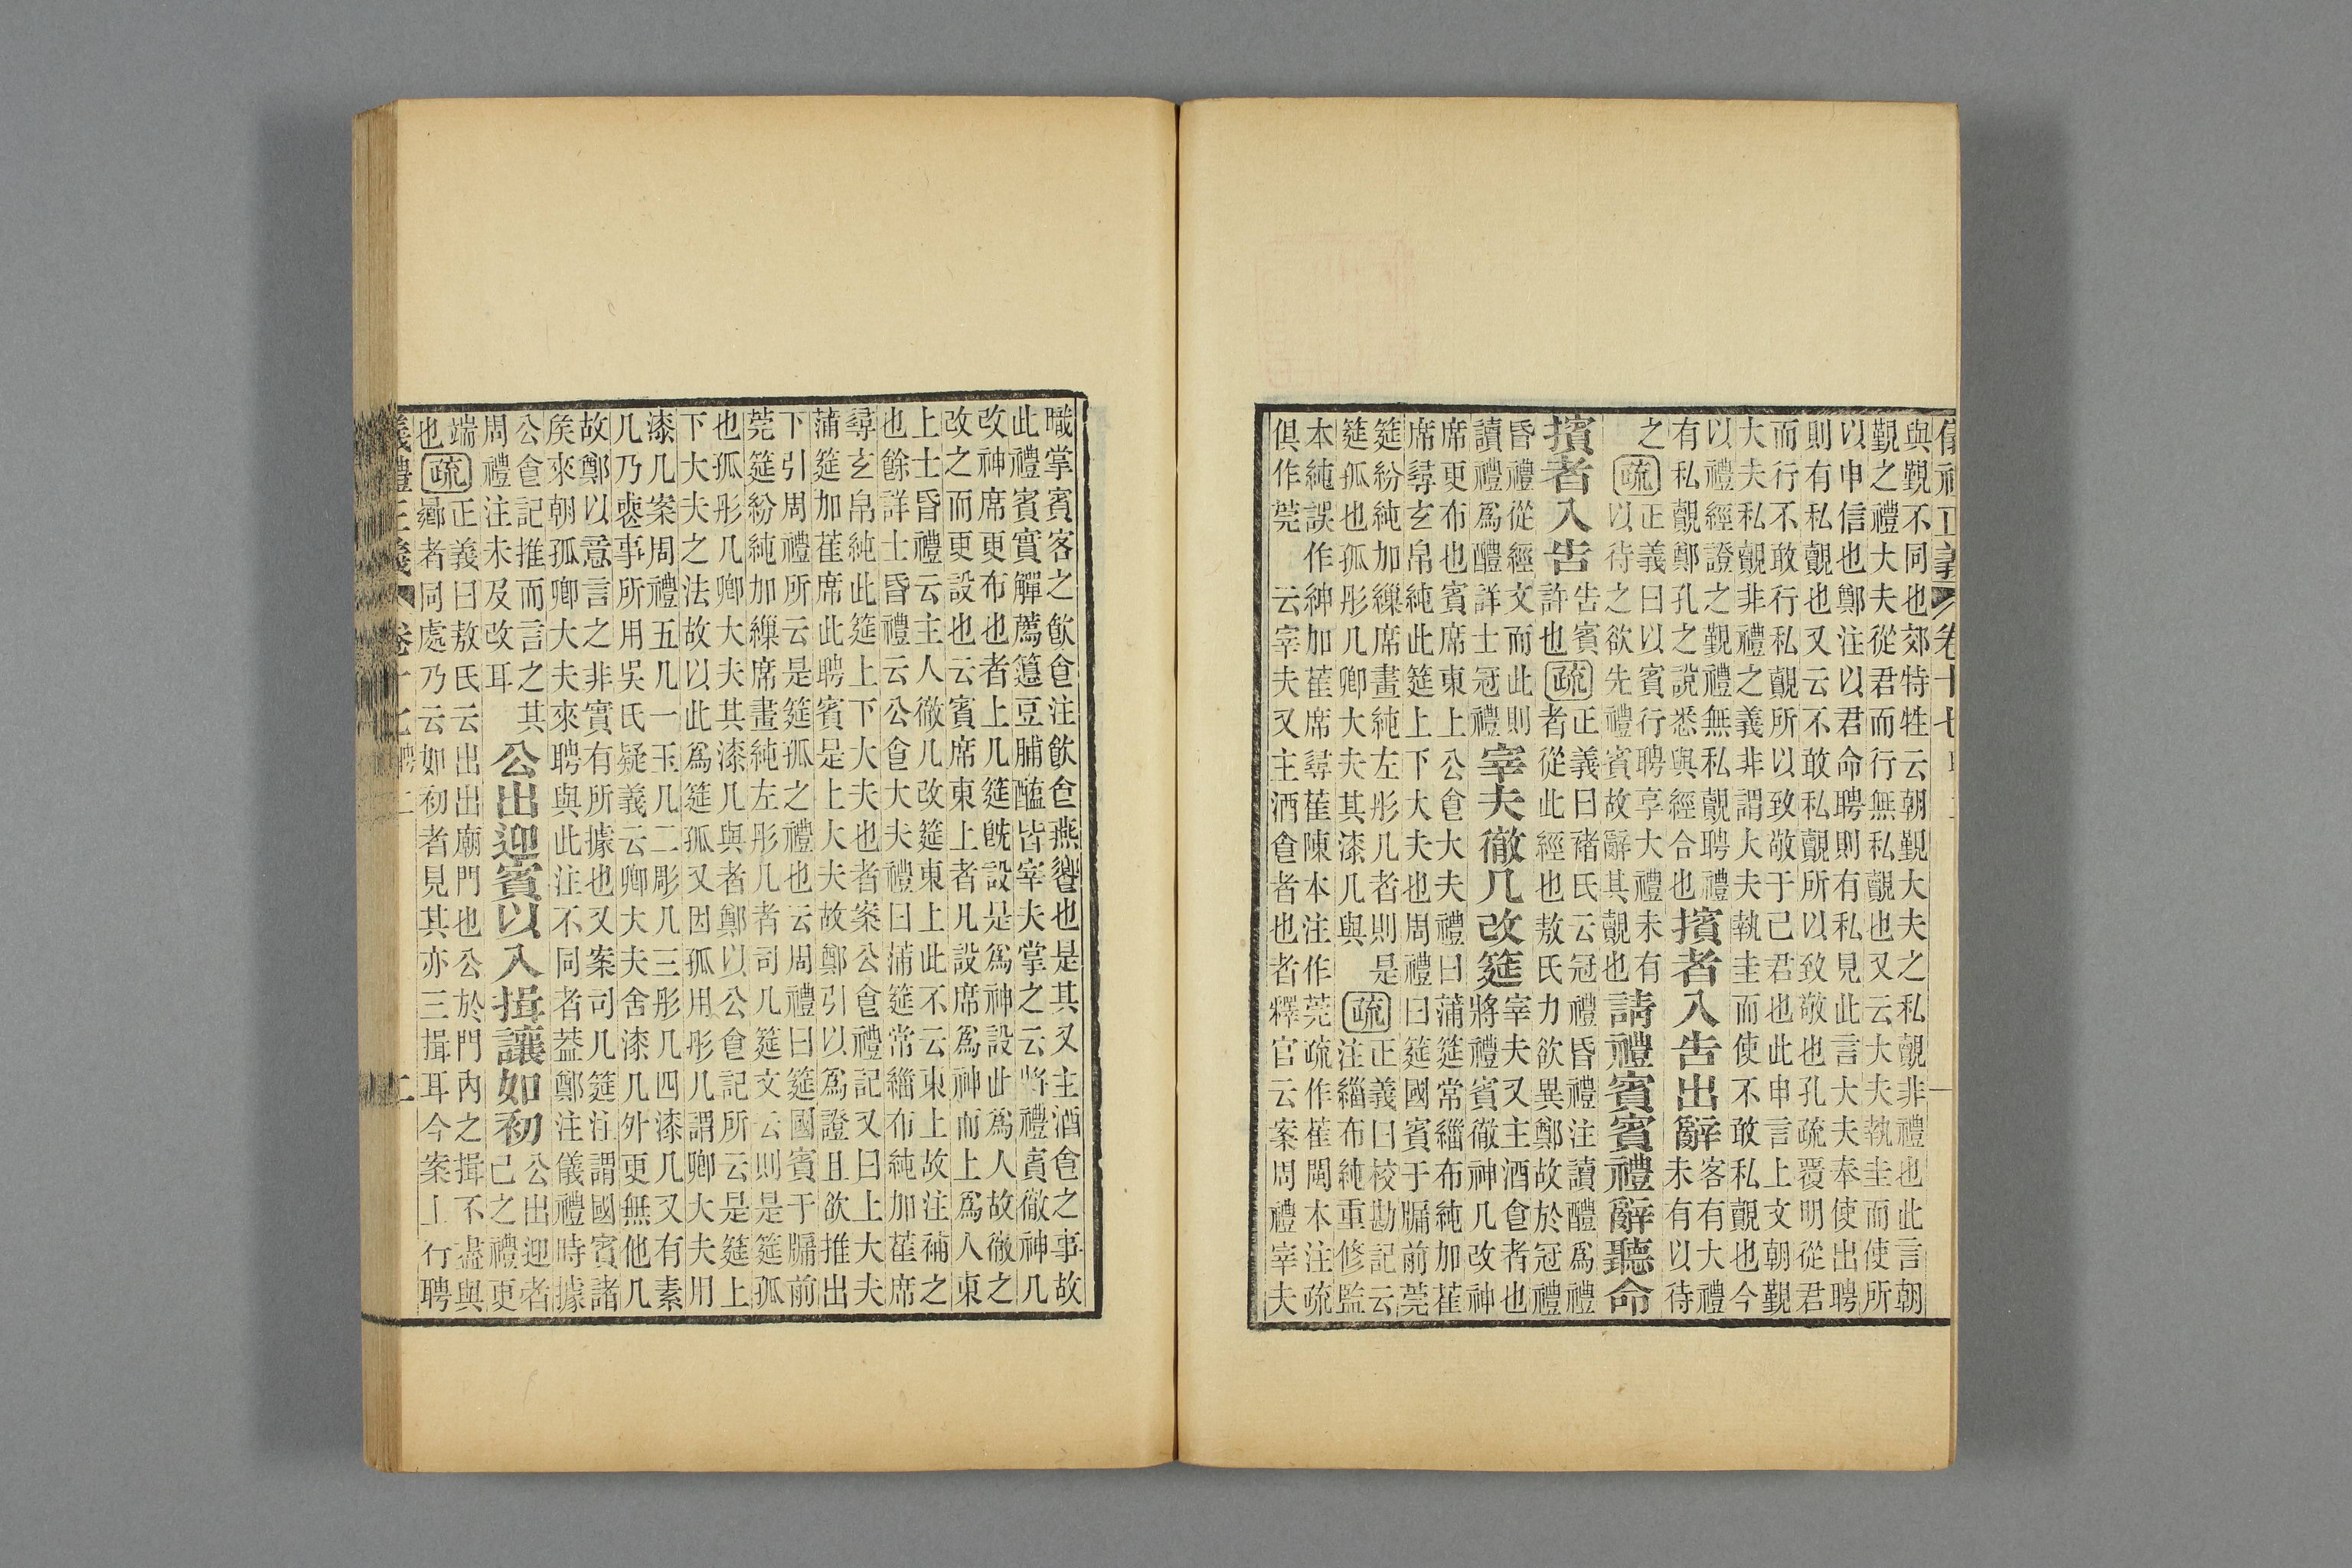 儀禮正義 卷十七 聘二 一
與覲不同也郊特牲云朝覲大夫之私覿非禮也此言朝
覲之禮大夫從君而行無私覿也又云大夫執圭而使所
以申信也鄭注以君命聘則有私見此言大夫奉使出聘
則有私覿也又云不敢私覿所以致敬也孔疏覆明從君
而行不敢行私覿所以致敬于己君也此申言上文朝覲
大夫私覿非禮之義非謂大夫執圭而使不敢私覿也今
以禮經證之覲禮無私覿聘禮
有私覿鄭孔之說悉與經合也
擯者入告出辭
客有大禮
未有以待
之
疏
正義曰以賓行聘享大禮未有
以待之欲先禮賓故辭其覿也
請禮賓賓禮辭聽命
擯者入告
告賓
許也
疏
正義曰褚氏云冠禮昏禮注讀醴爲禮
者從此經也敖氏力欲異鄭故於冠禮
昏禮從經文而此則
讀禮爲醴詳士冠禮
宰夫徹几改筵
宰夫又主酒食者也
將禮賓徹神几改神
席更布也賓席東上公食大夫禮曰蒲筵常緇布純加萑
席尋玄帛純此筵上下大夫也周禮曰筵國賓于牖前莞
筵紛純加繅席畫純左彤几者則是
筵孤也孤彤几卿大夫其漆几與
疏
正義曰校勘記云
注緇布純重修監
本純誤作紳加萑席尋萑陳本注作莞疏作萑閩本注疏
俱作莞　云宰夫又主酒食者也者釋官云案周禮宰夫
職掌賓客之飲食注飲食燕饗也是其又主酒食之事故
此禮賓實觶薦籩豆脯醢皆宰夫掌之云將禮賓徹神几
改神席更布也者上几筵既設是爲神設此爲人故徹之
改之而更設也云賓席東上者几設席爲神而上爲人東
上士昏禮云主人徹几改筵東上此不云東上故注補之
也餘詳士昏禮云公食大夫禮曰蒲筵常緇布純加萑席
尋玄帛純此筵上下大夫也者案公食禮記又曰上大夫
蒲筵加萑席此聘賓是上大夫故鄭引以爲證且欲推出
下引周禮所云是筵孤之禮也云周禮曰筵國賓于牖前
莞筵紛純加繅席畫純左彤几者司几筵文云則是筵孤
也孤彤几卿大夫其漆几與者鄭以公食記所云是筵上
下大夫之法故以此爲筵孤又因孤用彤几謂卿大夫用
漆几案周禮五几一玉几二彫几三彤几四漆几又有素
几乃喪事所用吳氏疑義云卿大夫舍漆几外更無他几
故鄭以意言之非實有所據也又案司几筵注謂國賓諸
矦來朝孤卿大夫來聘與此注不同者葢鄭注儀禮時據
公食記推而言之其
周禮注未及改耳
公出迎賓以入揖讓如初
公出迎者
己之禮更
端
也
疏
正義曰敖氏云出出廟門也公於門內之揖不盡與
鄉者同處乃云如初者見其亦三揖耳今案上行聘
義禮正義 卷十七 聘二 二